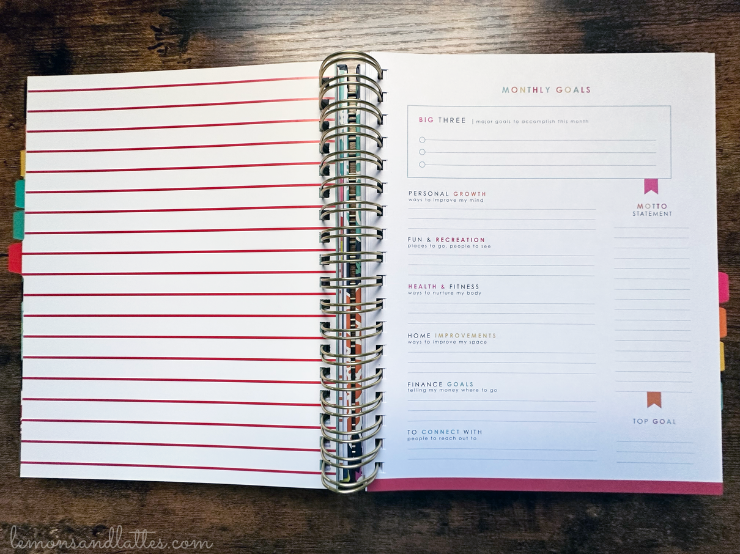 MONTHLY GOALS
BIG THREE | major goals to accomplish this month
PERSONAL GROWTH
ways to improve my mind
MOTTO
STATEMENT
FUN & RECREATION
places to go, people to see
HEALTH & FITNESS
ways to nurture my body
HOME IMPROVEMENTS
ways to improve my space
FINANCE GOALS
telling my money where to go
TOP GOAL
TO CONNECT WITH
people to reach out to
lemonsandlattes.com